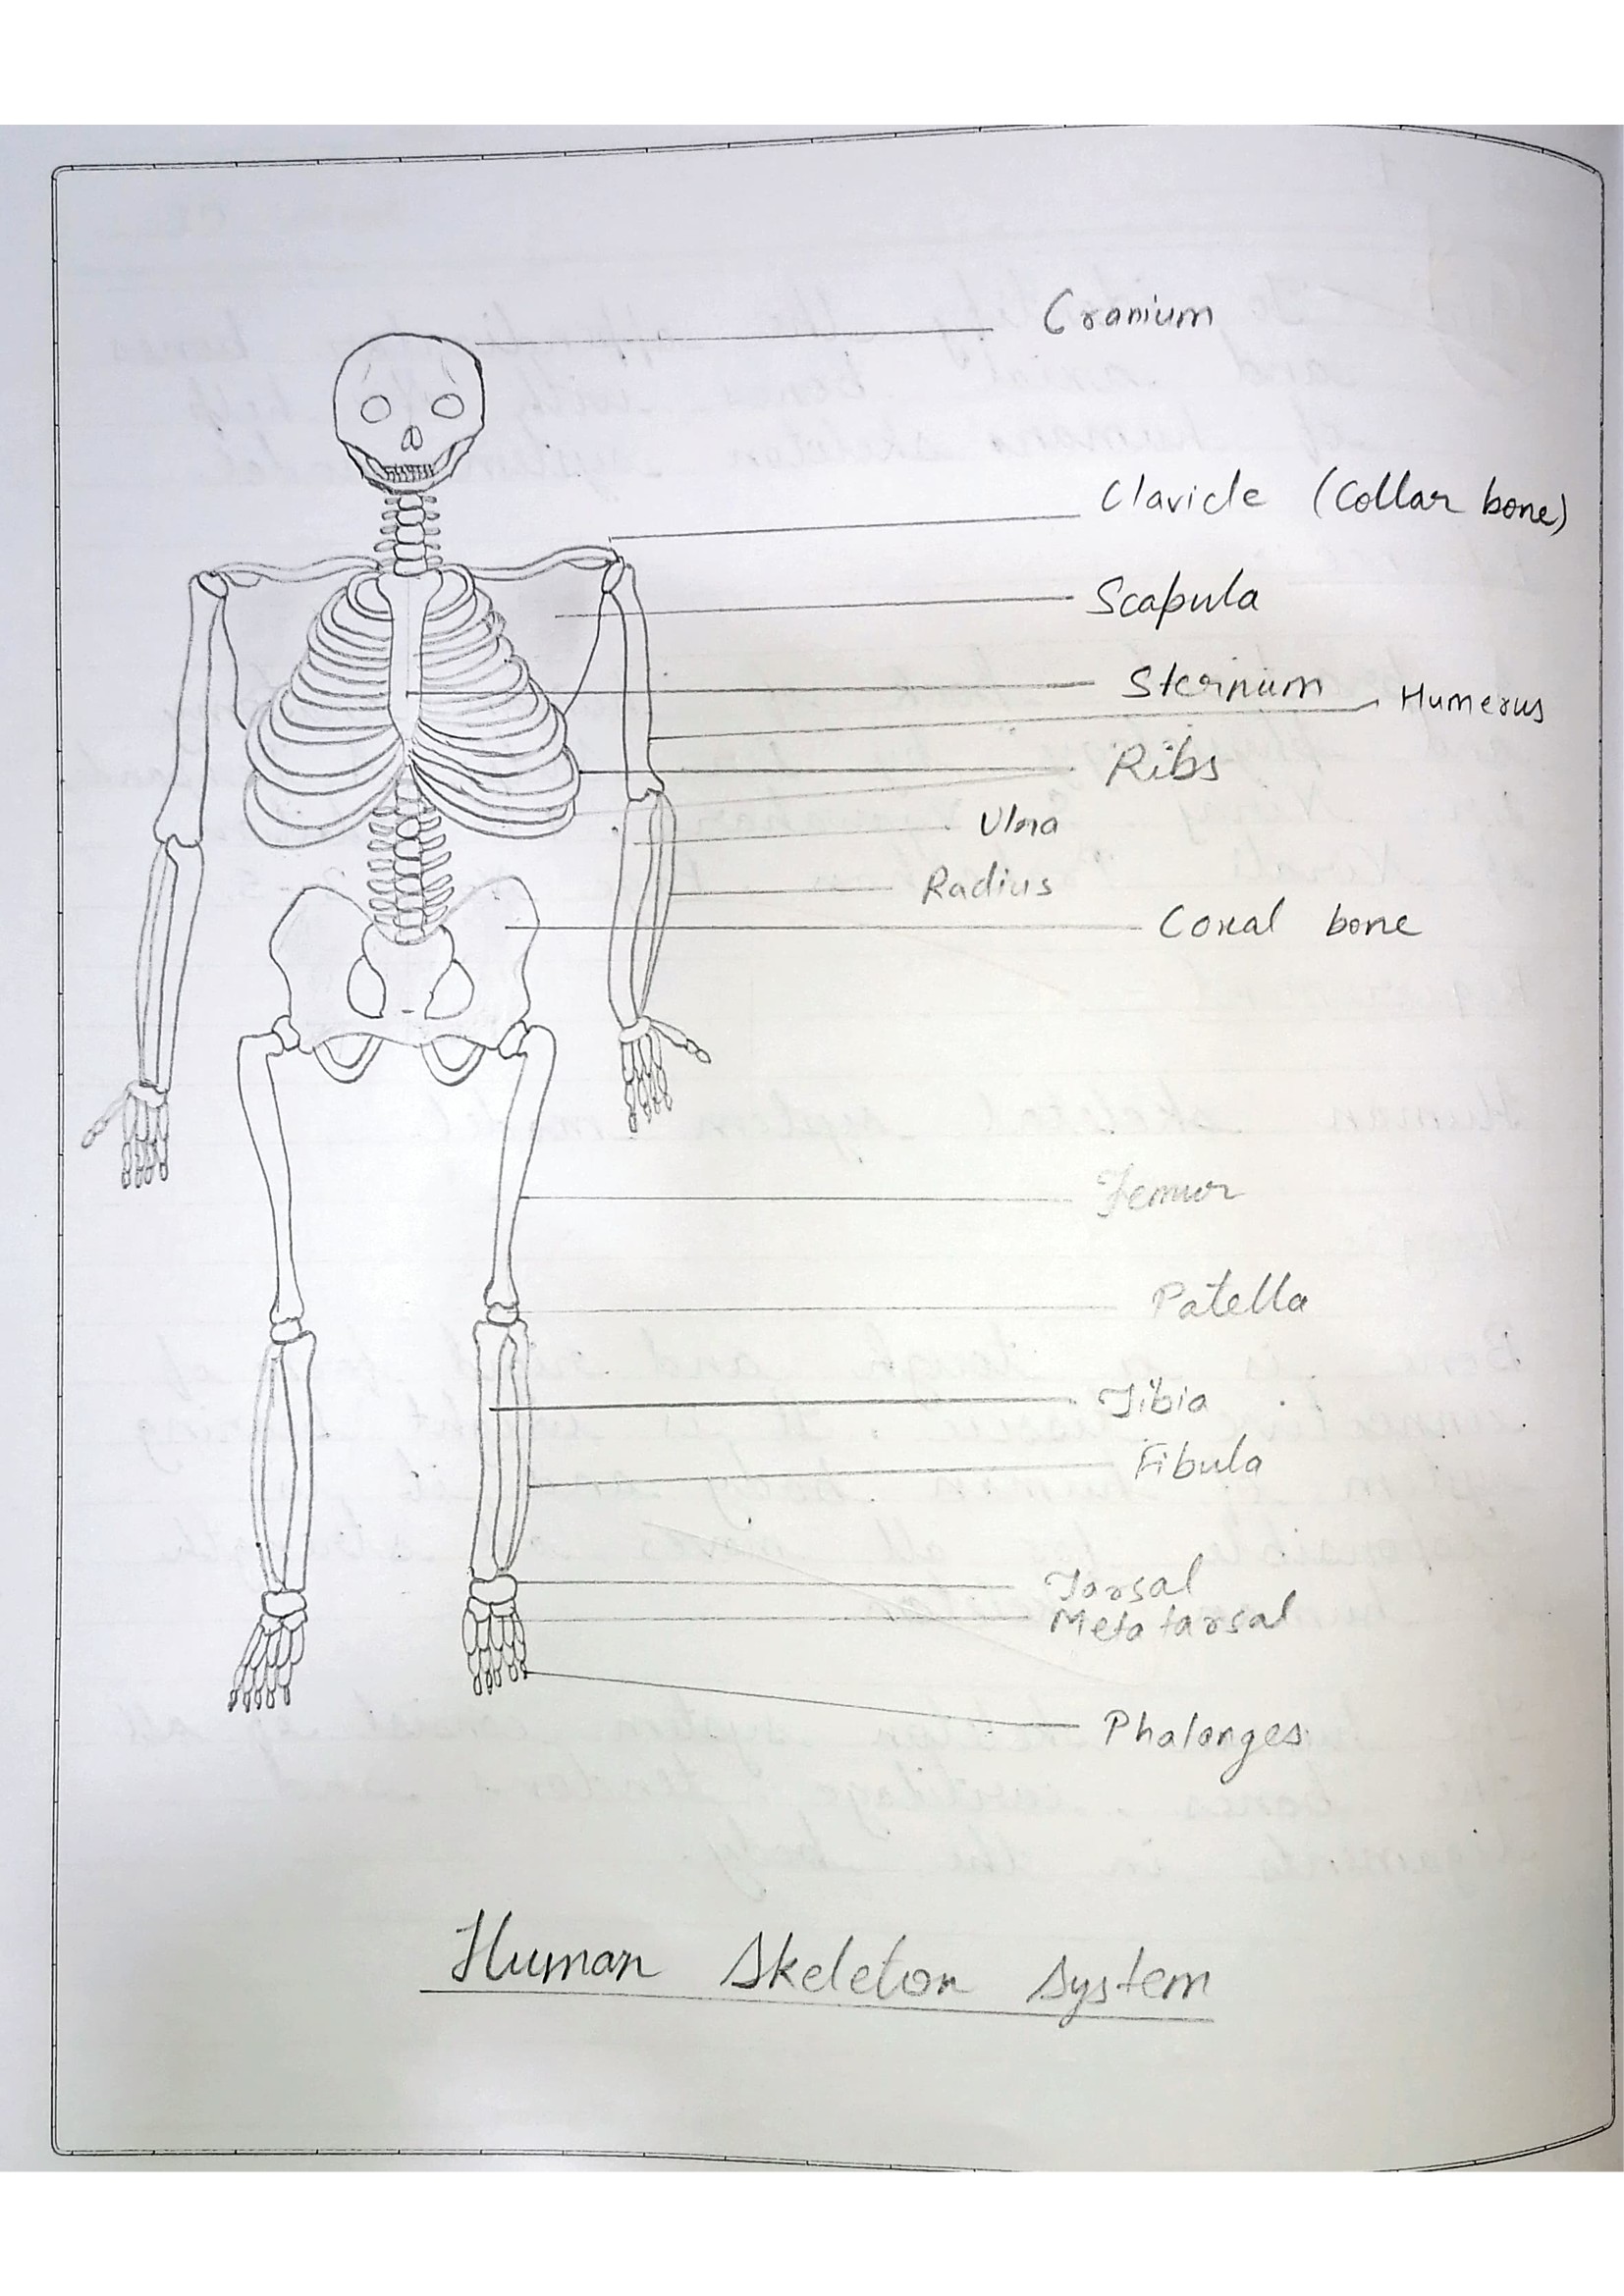 Cranium
Clavicle (Collar bone)
Scapula
Sternum
Humerus
Ribs
Ulna
Radius
Coxal bone
Femur
Patella
Tibia
Fibula
Tarsal
Metatarsal
Phalanges
Human Skeleton System